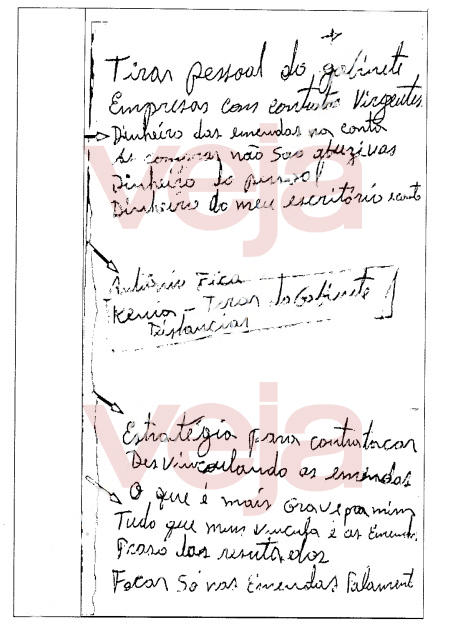 Tirar pessoal do gabinete
Empresas com contrato Virgentes
Dinheiro das emendas na conta
As compras não são abuzivas
Dinheiro do pessoal
Dinheiro do meu escritório
Antônio Fica
Kenio - Tirar do Gabinete
Distanciar
Estratégia para contratacar
Desvinculando as emendas
O que é mais Grave pra mim
Tudo que mim vincula é as Emendas
Prazo dos resultados
Focar Só nas Emendas Palament
veja
veja